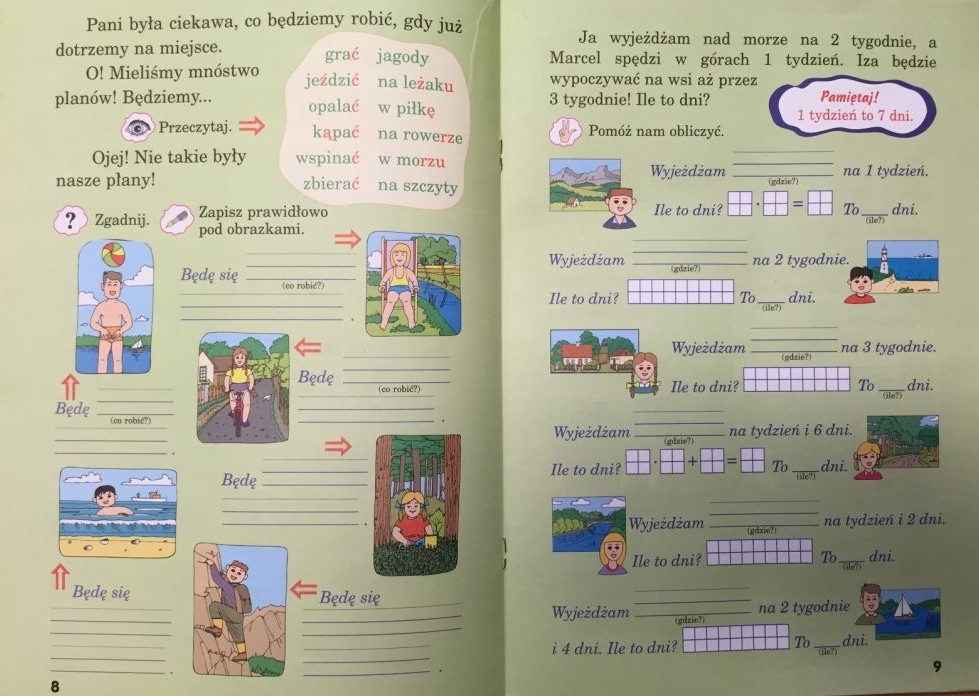 Pani była ciekawa, co będziemy robić, gdy już
dotrzemy na miejsce.
O! Mieliśmy mnóstwo
planów! Będziemy...
Przeczytaj.
grać jagody
jeździć na leżaku
opalać w piłkę
kąpać na rowerze
wspinać w morzu
zbierać na szczyty
Ojej! Nie takie były
nasze plany!
? Zgadnij.
Zapisz prawidłowo
pod obrazkami.
Będę się
(co robić?)
.
Będę
(co robić?)
.
Będę
(co robić?)
.
Będę
.
Będę się
.
Będę się
.
8
Ja wyjeżdżam nad morze na 2 tygodnie, a
Marcel spędzi w górach 1 tydzień. Iza będzie
wypoczywać na wsi aż przez
3 tygodnie! Ile to dni?
Pamiętaj!
1 tydzień to 7 dni.
Pomóż nam obliczyć.
Wyjeżdżam na 1 tydzień.
(gdzie?)
Ile to dni? · = To ___ dni.
(ile?)
Wyjeżdżam na 2 tygodnie.
(gdzie?)
Ile to dni? To ___ dni.
(ile?)
Wyjeżdżam na 3 tygodnie.
(gdzie?)
Ile to dni? To ___ dni.
(ile?)
Wyjeżdżam na tydzień i 6 dni.
(gdzie?)
Ile to dni? · + = To ___ dni.
(ile?)
Wyjeżdżam na tydzień i 2 dni.
(gdzie?)
Ile to dni? To ___ dni.
(ile?)
Wyjeżdżam na 2 tygodnie
(gdzie?)
i 4 dni. Ile to dni? To ___ dni.
(ile?)
9